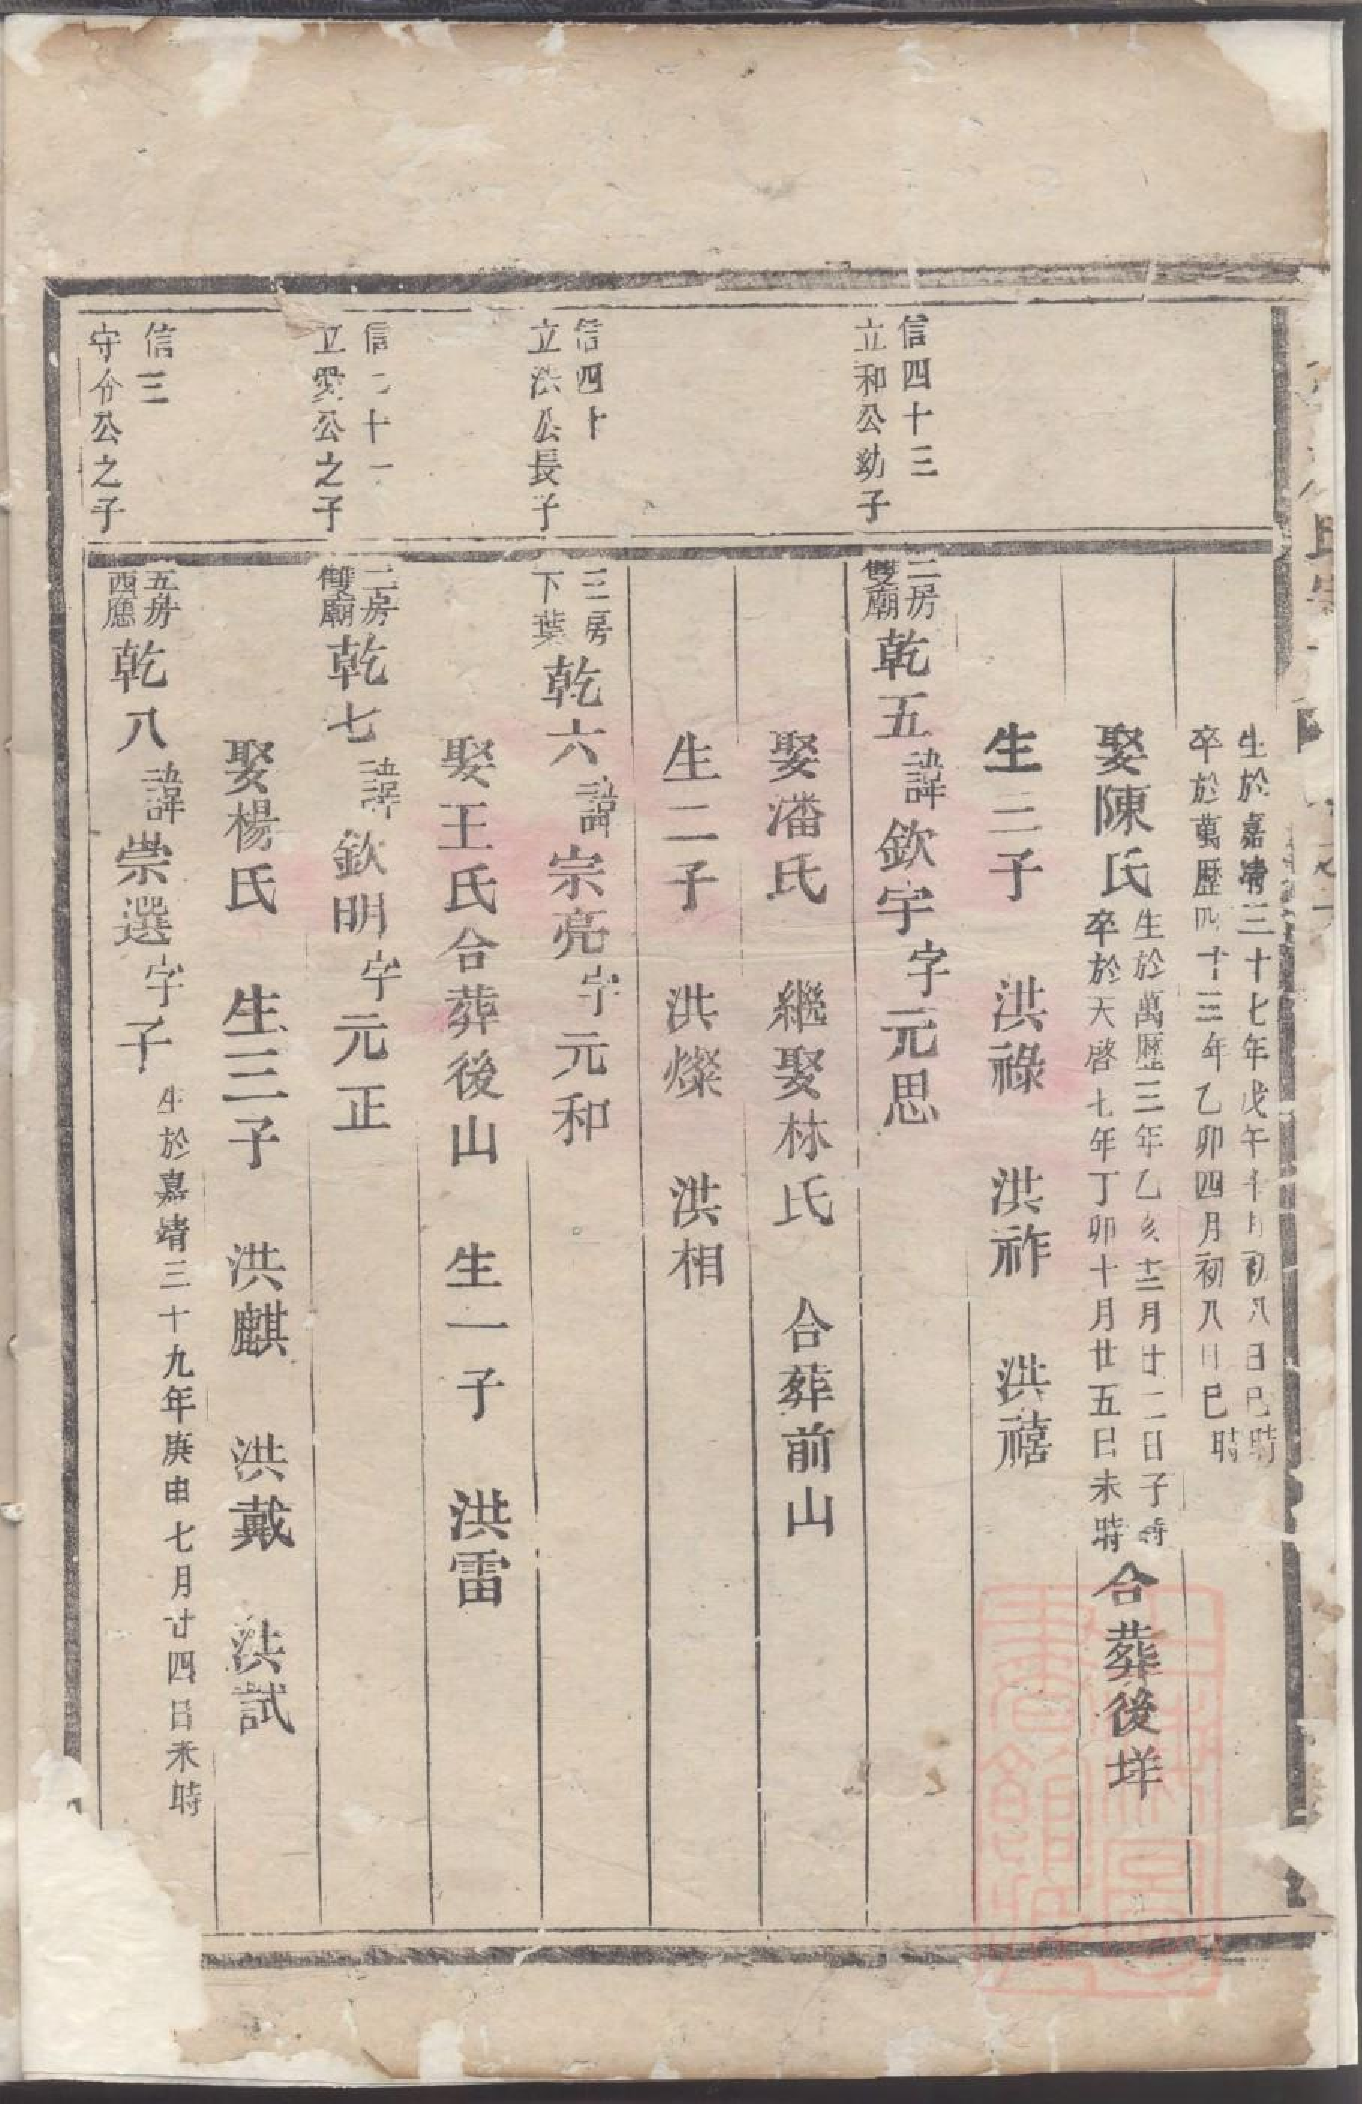 生於嘉靖三十七年戊午十月初八日巳時
卒於萬歷四十三年乙卯四月初八日巳時
娶陳氏
生於萬歷三年乙亥十二月廿二日子時
卒於天啓七年丁卯十月廿五日未時
合葬後垟
生三子 洪祿 洪祚 洪禧
信四十三
立和公幼子
二房
雙廟
乾五諱欽宇字元思
娶潘氏 繼娶林氏 合葬前山
生二子 洪燦 洪相
信四十
立法公長子
三房
下葉
乾六諱宗亮字元和
娶王氏合葬後山 生一子 洪雷
信二十一
立愛公之子
二房
雙廟
乾七諱欽明字元正
娶楊氏 生三子 洪麒 洪戴 洪試
信三
守分公之子
五房
西應
乾八諱崇選字子
生於嘉靖三十九年庚申七月廿四日未時